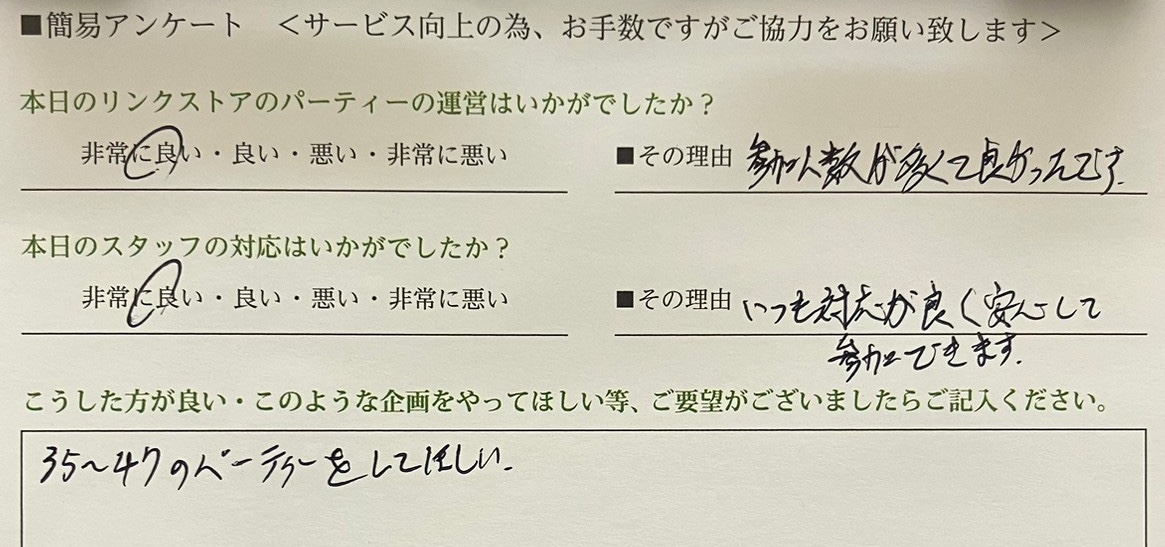 ■簡易アンケート ＜サービス向上の為、お手数ですがご協力をお願い致します＞
本日のリンクストアのパーティーの運営はいかがでしたか？
非常に良い・良い・悪い・非常に悪い ■その理由 参加人数が多くて良かったです.
本日のスタッフの対応はいかがでしたか？
非常に良い・良い・悪い・非常に悪い ■その理由 いつも対応が良く安心して
参加できます.
こうした方が良い・このような企画をやってほしい等、ご要望がございましたらご記入ください。
35〜47のパーティーをしてほしい.